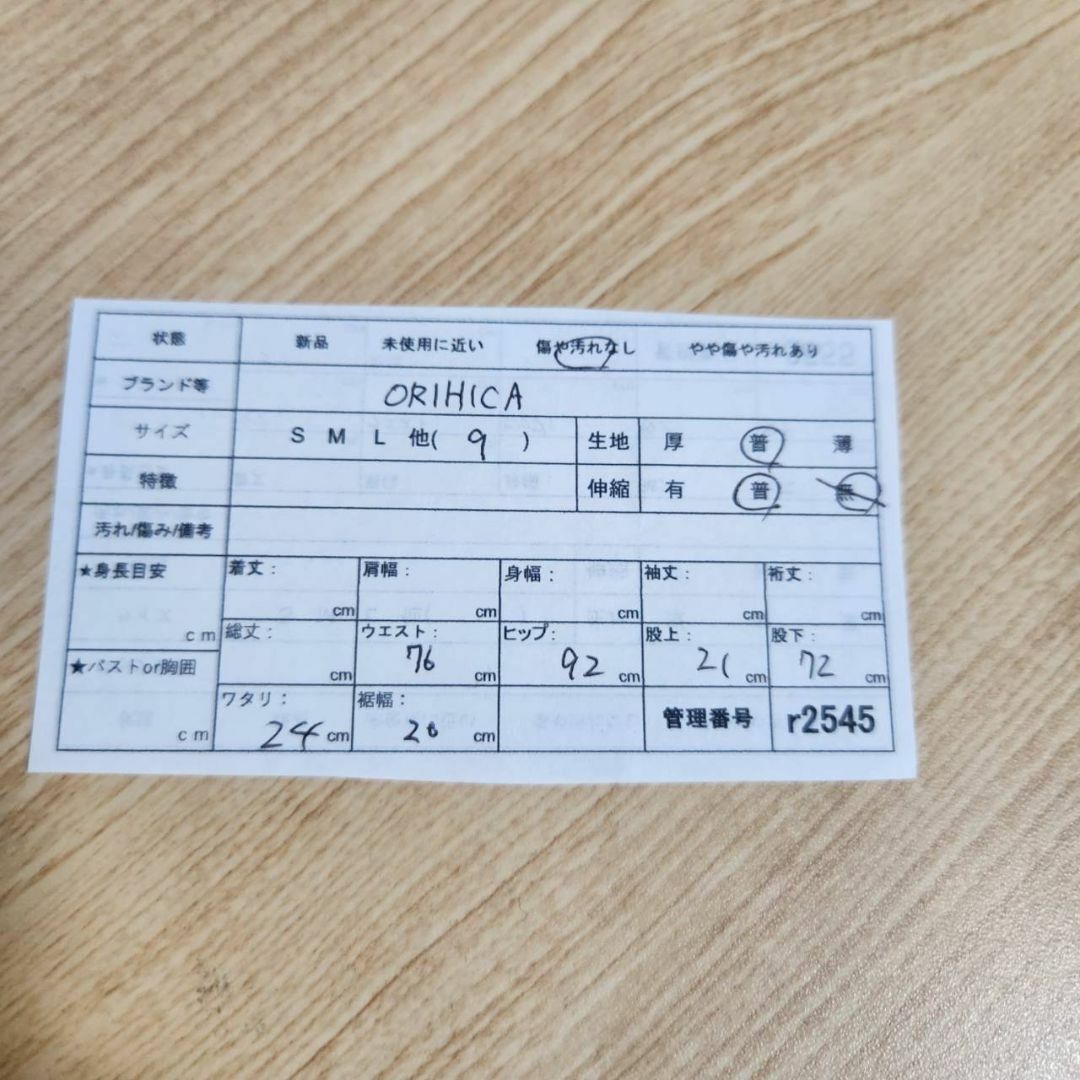 状態 新品 未使用に近い 傷や汚れなし やや傷や汚れあり
ブランド等 ORIHICA
サイズ S M L 他( 9 ) 生地 厚 普 薄
特徴 伸縮 有 普 無
汚れ/傷み/備考
★身長目安 cm 着丈: cm 肩幅: cm 身幅: cm 袖丈: cm 裄丈: cm
総丈: cm ウエスト: 76 ヒップ: 92 cm 股上: 21 cm 股下: 72 cm
★バストor胸囲 cm ワタリ: 24 cm 裾幅: 20 cm 管理番号 r2545